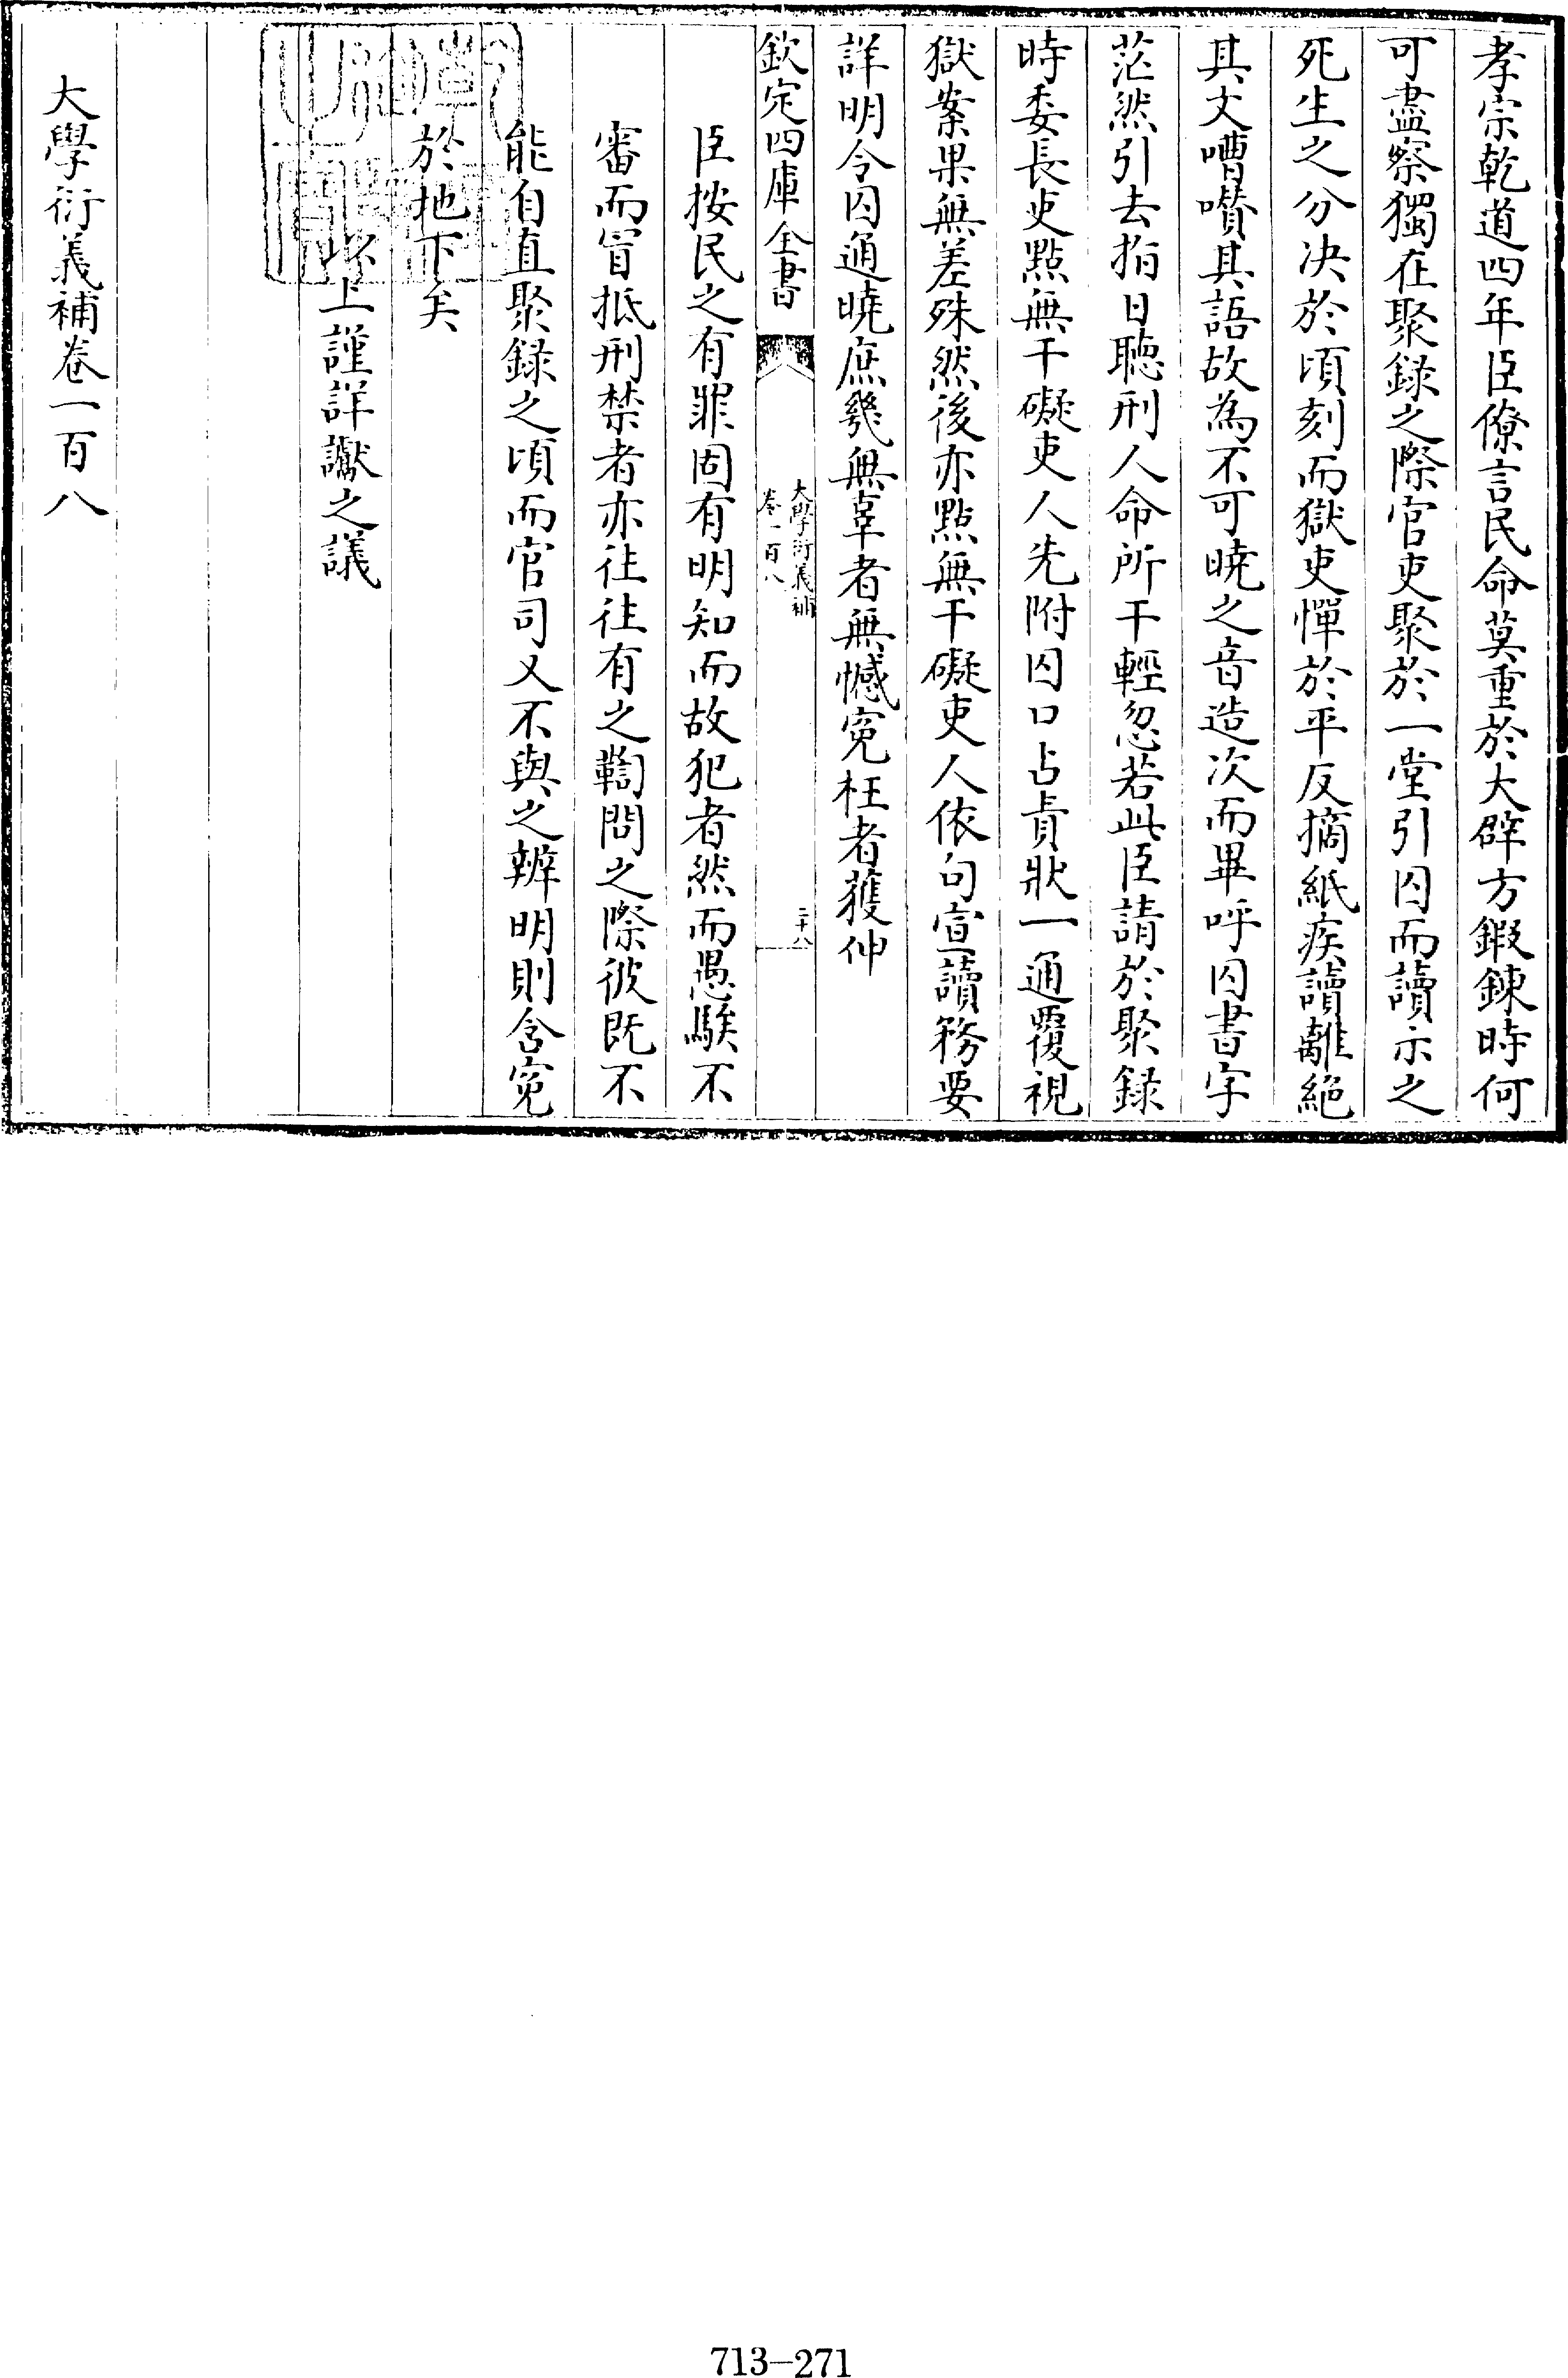 孝宗乾道四年臣僚言民命莫重於大辟方鍜鍊時何
可盡察獨在聚録之際官吏聚於一堂引囚而讀示之
死生之分决於頃刻而獄吏憚於平反摘紙疾讀離絶
其文嘈囋其語故為不可曉之音造次而畢呼囚書字
茫然引去指日聽刑人命所干輕忽若此臣請於聚録
時委長吏點無干礙吏人先附囚口占責狀一通覆視
獄案果無差殊然後亦點無干礙吏人依句宣讀務要
詳明令囚通曉庶幾無辜者無憾寃枉者獲伸
欽定四庫全書
大學衍義補
卷一百八
二十八
臣按民之有罪固有明知而故犯者然而愚騃不
審而冒抵刑禁者亦往往有之鞫問之際彼既不
能自直聚録之頃而官司又不與之辨明則含寃
於地下矣
以上謹詳讞之議
大學衍義補卷一百八
713-271